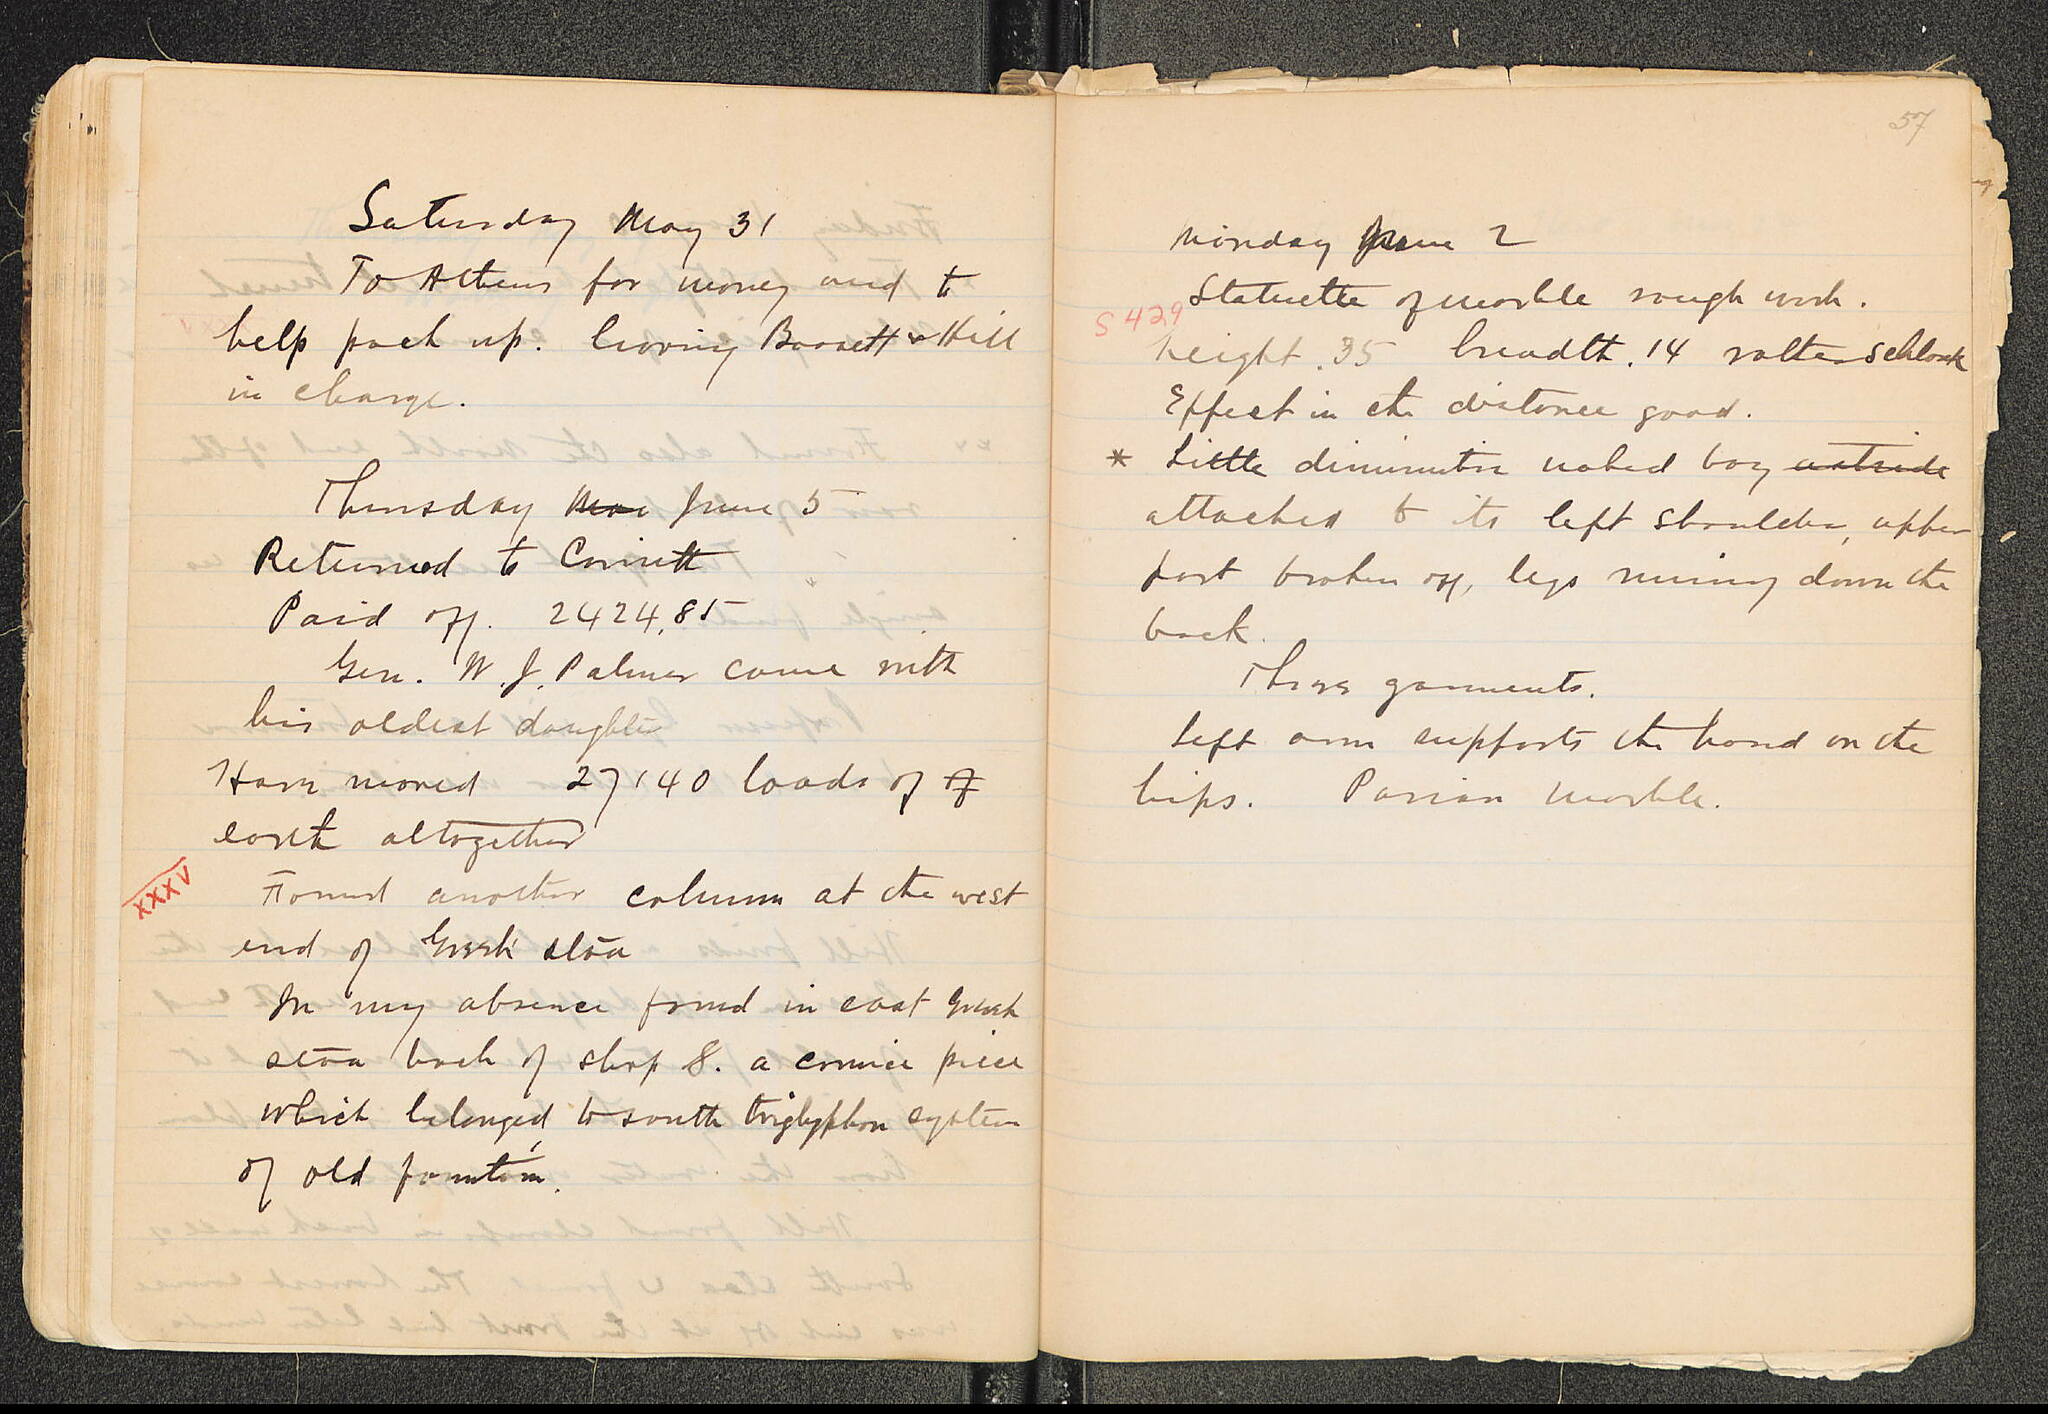 Saturday May 31
To Athens for money and to
help pack up. leaving Bassett & Hill
in charge.
Thursday June 5
Returned to Corinth
Paid off. 2424,85
Gen. W. J. Palmer came with
his oldest daughter
Have moved 27140 loads of of
earth altogether
XXXV
Found another column at the west
end of Greek stoa
In my absence found in east Greek
stoa back of shop 8. a cornice piece
which belonged to south triglyphon system
of old fountain.
57
Monday June 2
Statuette of marble rough work.
S 429
height .35 breadth .14 rather schlank
Effect in the distance good.
* Little diminutive naked boy astride
attached to its left shoulder, upper
part broken off, legs running down the
back.
Three garments.
Left arm supports the hand on the
hips. Parian marble.